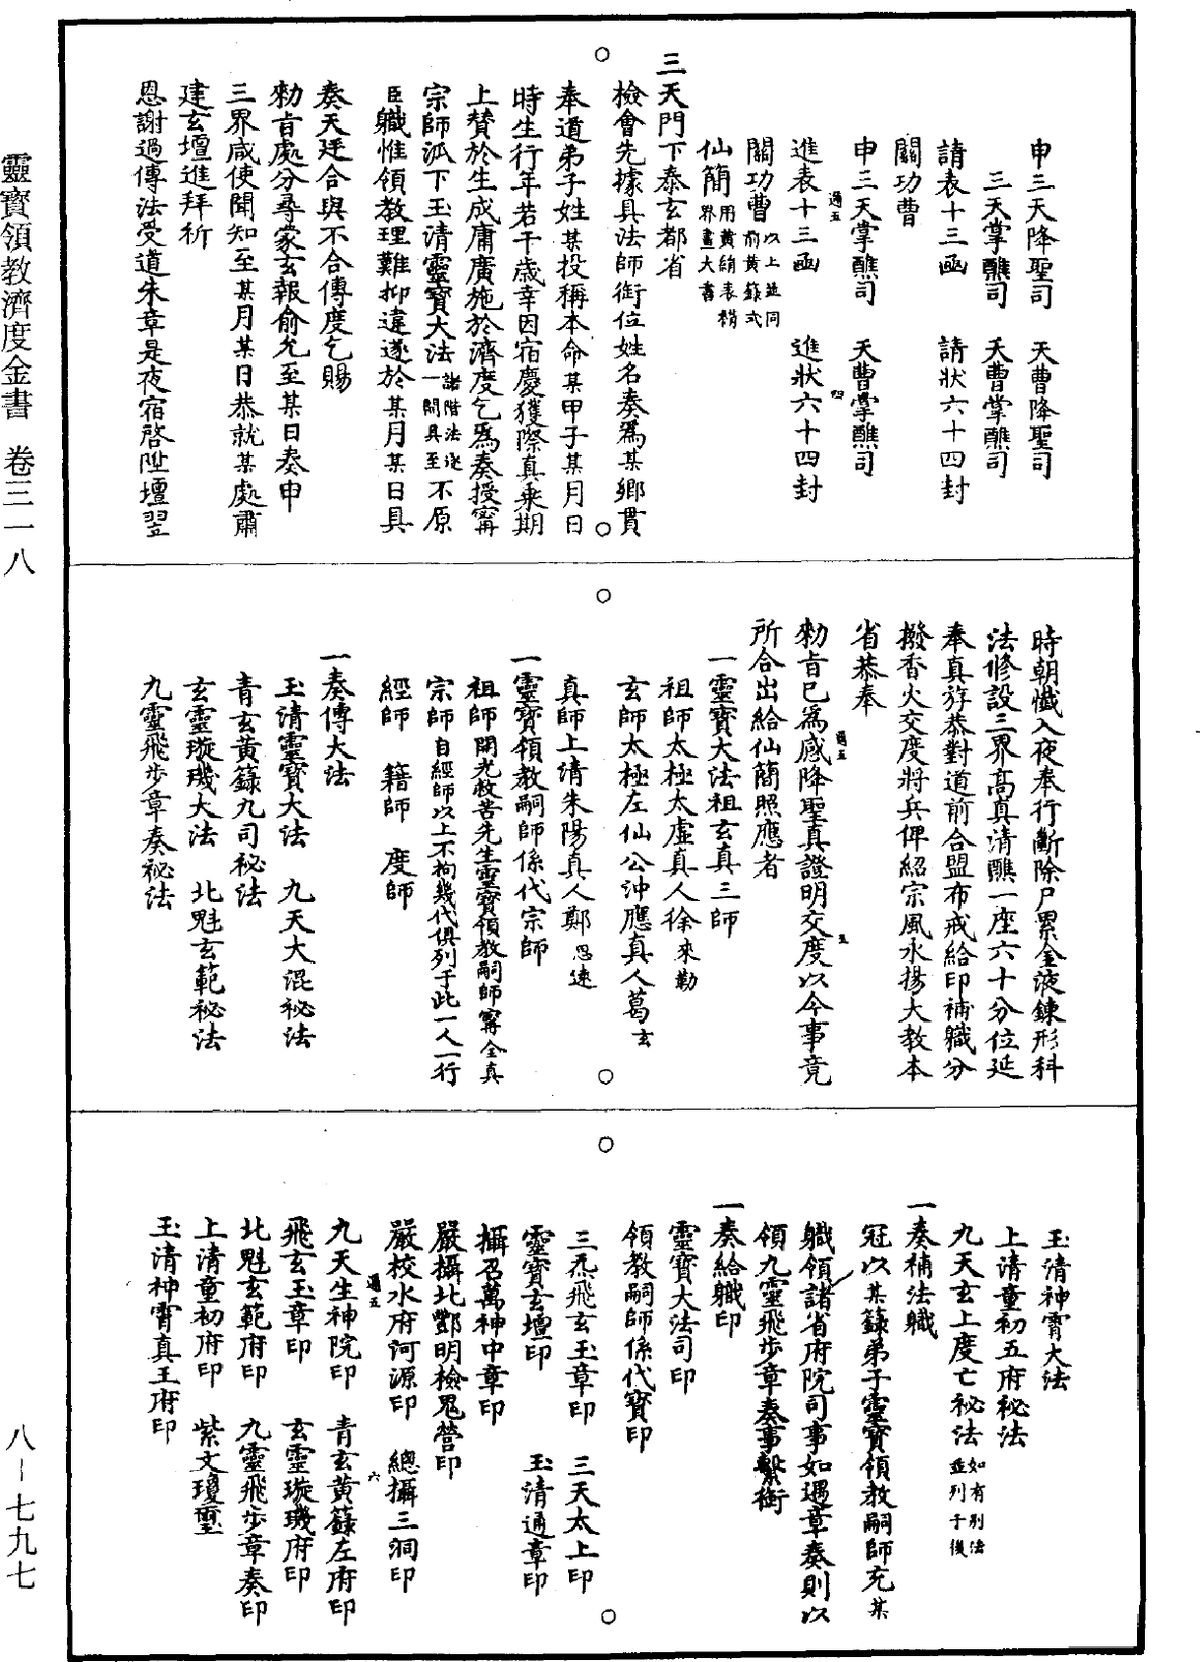 靈寶領教濟度金書 卷三一八
八—七九七
申三天降聖司 天曹降聖司
三天掌醮司 天曹掌醮司
請表十三函 請狀六十四封
關功曹
申三天掌醮司 天曹掌醮司
進表十三函 進狀六十四封
關功曹以上並同前黃籙式
仙簡用黃絹表褙界畫大書
三天門下泰玄都省
檢會先據具法師銜位姓名奏爲某鄉貫
奉道弟子姓某投稱本命某甲子某月日
時生行年若干歲幸因宿慶獲際真乘期
上賛於生成庸廣施於濟度乞爲奏授甯
宗師派下玉清靈寶大法諸階法逐一開具至不原
臣職惟領教理難抑違遂於某月某日具
奏天廷合與不合傳度乞賜
勑旨處分尋蒙玄報俞允至某日奏申
三界咸使聞知至某月某日恭就某處肅
建玄壇進拜祈
恩謝過傳法受道朱章是夜宿啓陞壇翌
時朝懺入夜奉行斷除尸累金液鍊形科
法修設三界高真清醮一座六十分位延
奉真斿恭對道前合盟布戒給印補職分
撥香火交度將兵俾紹宗風永揚大教本
省恭奉
勑旨已爲感降聖真證明交度以今事竟
所合出給仙簡照應者
一靈寶大法祖玄真三師
祖師太極太虛真人徐來勒
玄師太極左仙公沖應真人葛玄
真師上清朱陽真人鄭思遠
一靈寶領教嗣師係代宗師
祖師開光救苦先生靈寶領教嗣師甯全真
宗師自經師以上不拘幾代俱列于此一人一行
經師 籍師 度師
一奏傳大法
玉清靈寶大法 九天大混祕法
青玄黃籙九司祕法
玄靈璇璣大法 北魁玄範祕法
九靈飛步章奏祕法
玉清神霄大法
上清童初五府祕法
九天玄上度亡祕法如有別法並列于後
一奏補法職
冠以某籙弟子靈寶領教嗣師充某
職領諸省府院司事如遇章奏則以
領九靈飛步章奏事繫銜
一奏給職印
靈寶大法司印
領教嗣師係代寶印
三炁飛玄玉章印 三天太上印
靈寶玄壇印 玉清通章印
攝召萬神中章印
嚴攝北酆明檢鬼營印
嚴校水府河源印 總攝三洞印
九天生神院印 青玄黃籙左府印
飛玄玉章印 玄靈璇璣府印
北魁玄範府印 九靈飛步章奏印
上清童初府印 紫文瓊璽
玉清神霄真王府印